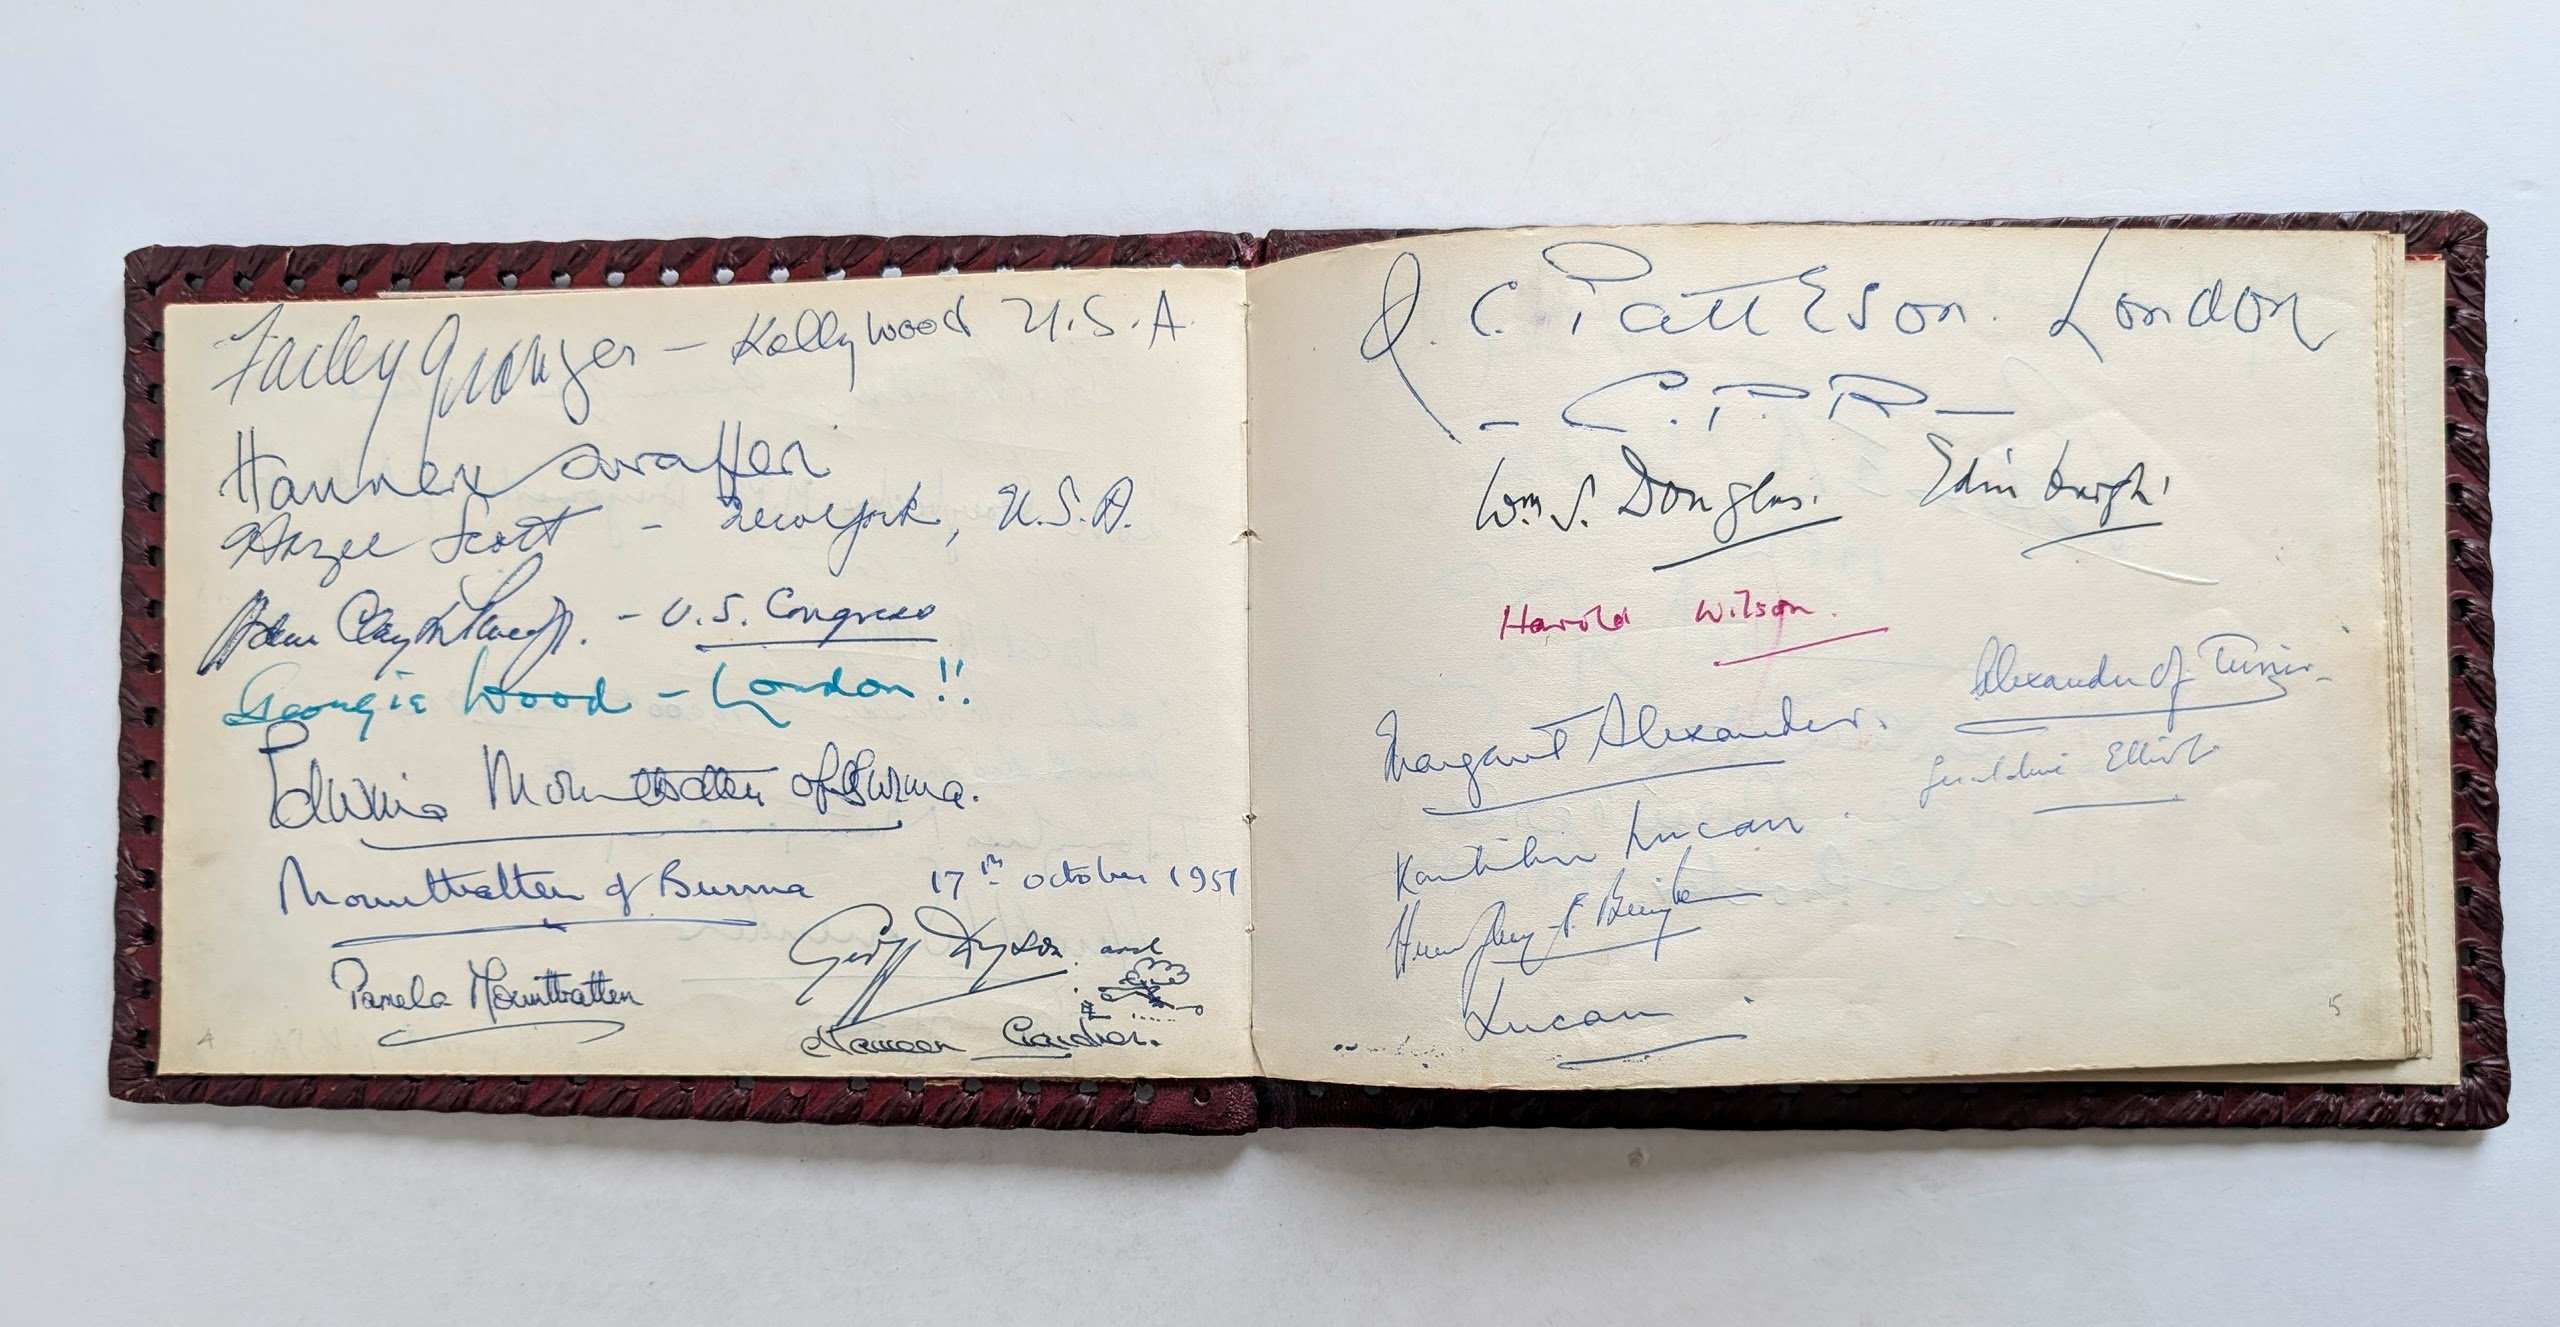 Farley Granger – Hollywood U.S.A.
Hannen Swaffer
Hazel Scott – New York, U.S.A.
Adam Clayton Powell Jr. – U.S. Congress
Georgie Wood – London!!
Edwina Mountbatten of Burma.
Mountbatten of Burma 17th October 1951
Pamela Mountbatten
Geoff Dyson. and
Maureen Gardner.
4
C. Patterson. London
– C.P.R –
Wm S. Douglas. Edinburgh
Harold Wilson.
Alexander of Tunis
Margaret Alexander.
Geraldine Elliot
Lucan
Humphrey
Lucan
5